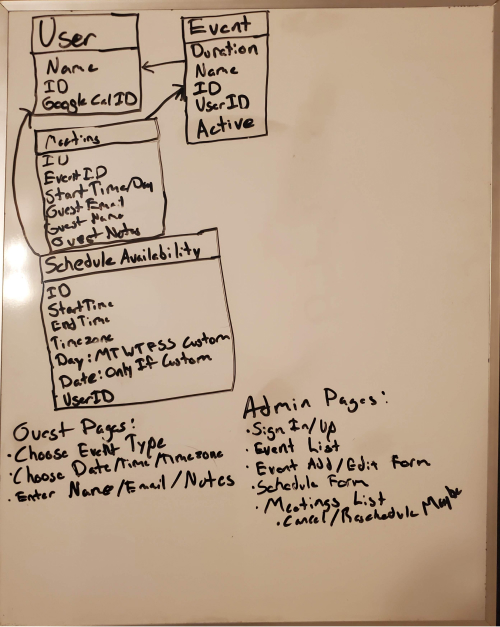 User
Name
ID
Google Cal ID
Event
Duration
Name
ID
UserID
Active
Meeting
ID
Event ID
Start Time/Day
Guest Email
Guest Name
Guest Notes
Schedule Availability
ID
Start Time
End Time
Timezone
Day: MTWTFSS Custom
Date: Only If Custom
UserID
Guest Pages:
• Choose Event Type
• Choose Date/Time/Timezone
• Enter Name/Email/Notes
Admin Pages:
• Sign In/Up
• Event List
• Event Add/Edit Form
• Schedule Form
• Meetings List
• Cancel/Reschedule Maybe